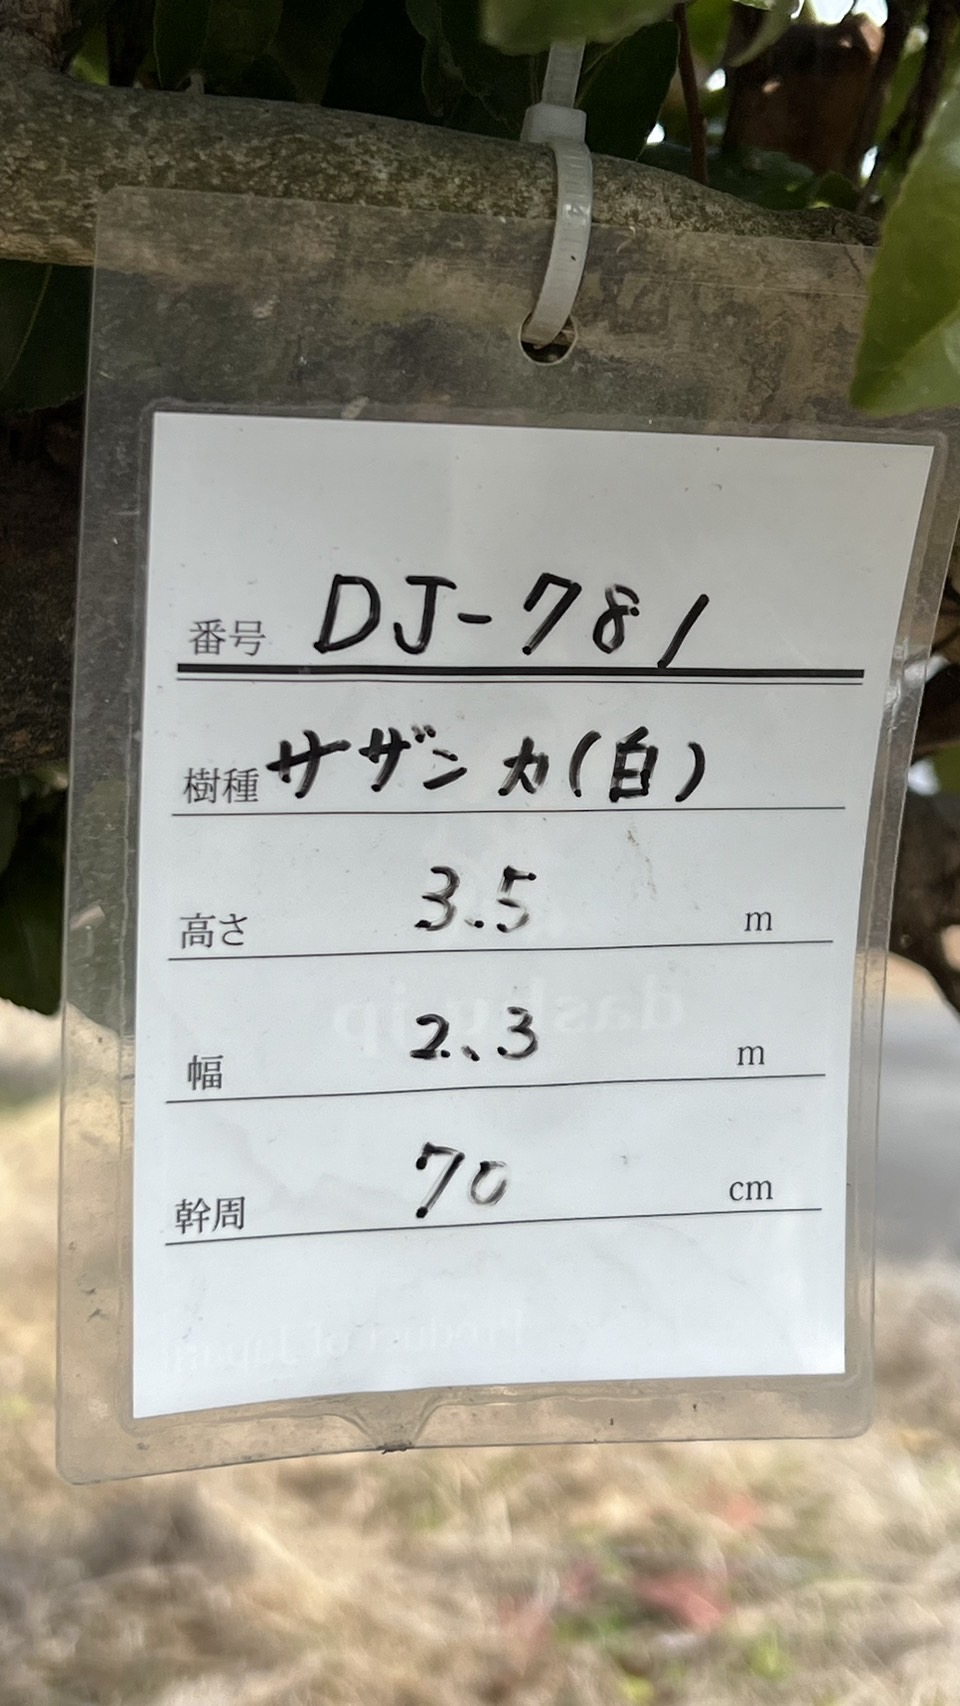 番号 DJ-781
樹種 サザンカ(白)
高さ 3.5 m
幅 2.3 m
幹周 70 cm
dashu.jp
Product of Japan